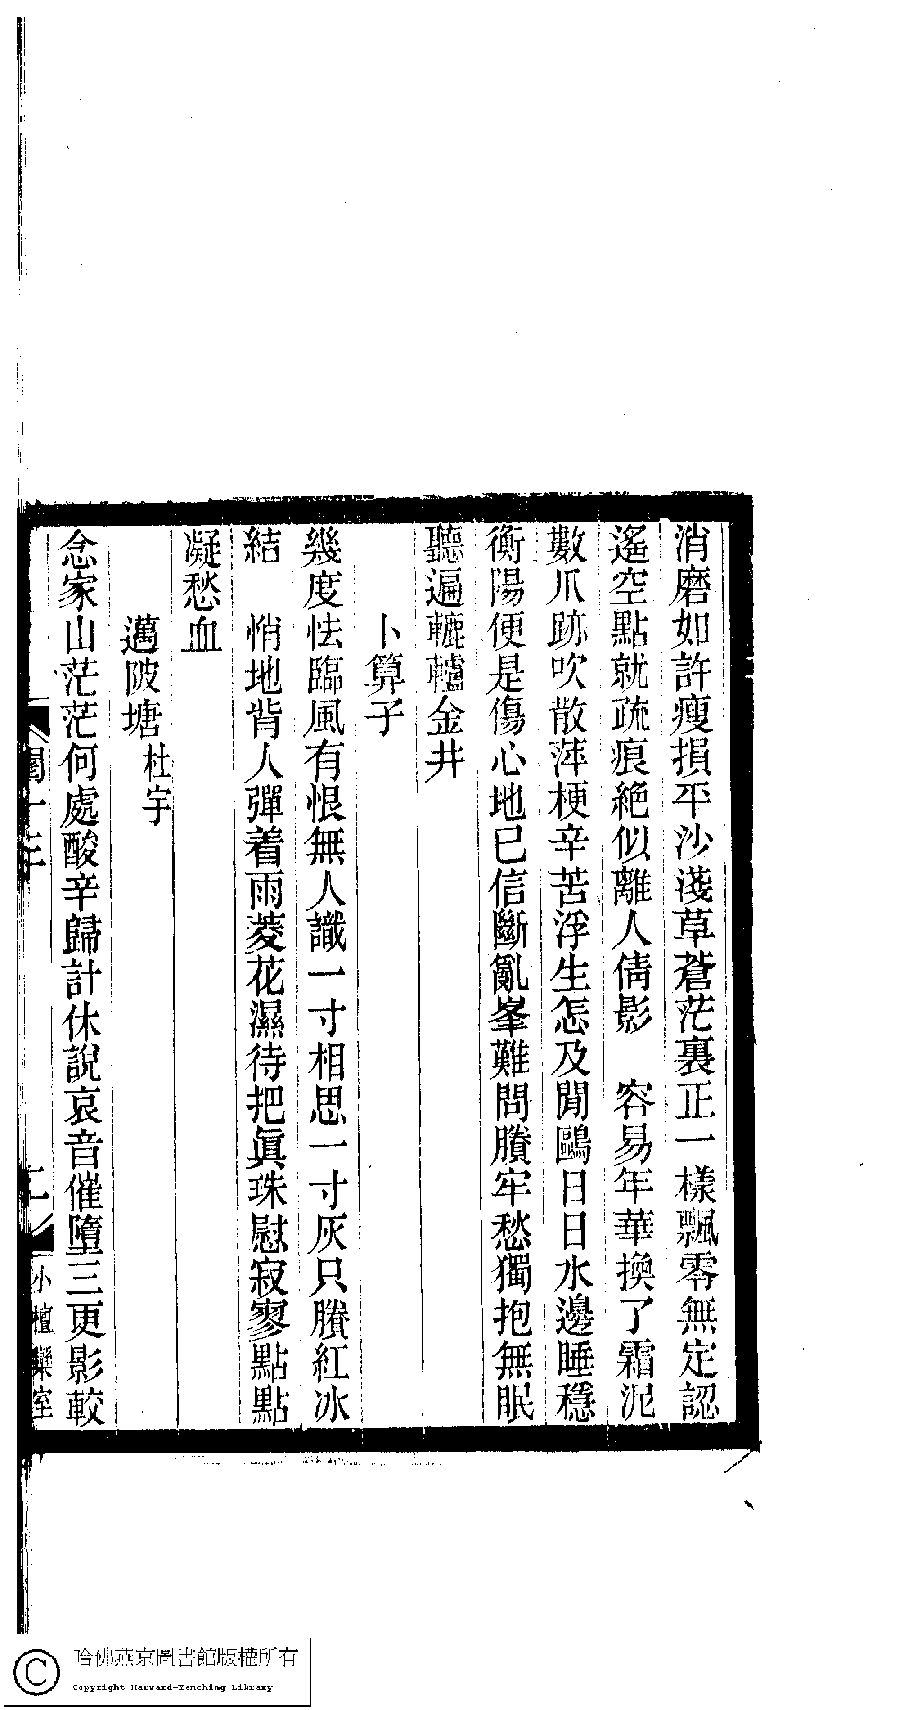 消磨如許瘦損平沙淺草蒼茫裏正一樣飄零無定認
遙空點就疏痕絕似離人倩影　容易年華換了霜泥
數爪跡吹散萍梗辛苦浮生怎及閒鷗日日水邊睡穩
衡陽便是傷心地已信斷亂峯難問賸牢愁獨抱無眠
聽遍轆轤金井
卜算子
幾度怯臨風有恨無人識一寸相思一寸灰只賸紅冰
結　悄地背人彈着雨菱花濕待把眞珠慰寂寥點點
凝愁血
邁陂塘杜宇
念家山茫茫何處酸辛歸計休說哀音催墮三更影較
小檀欒室
哈佛燕京圖書館版權所有
Copyright Harvard-Yenching Library